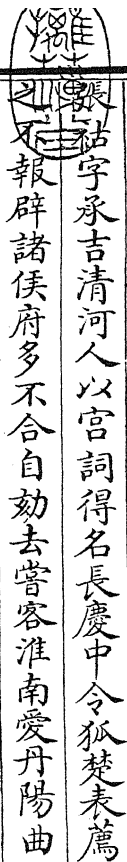 張祜字承吉清河人以宮詞得名長慶中令狐楚表薦
之不報辟諸侯府多不合自劾去嘗客淮南愛丹陽曲